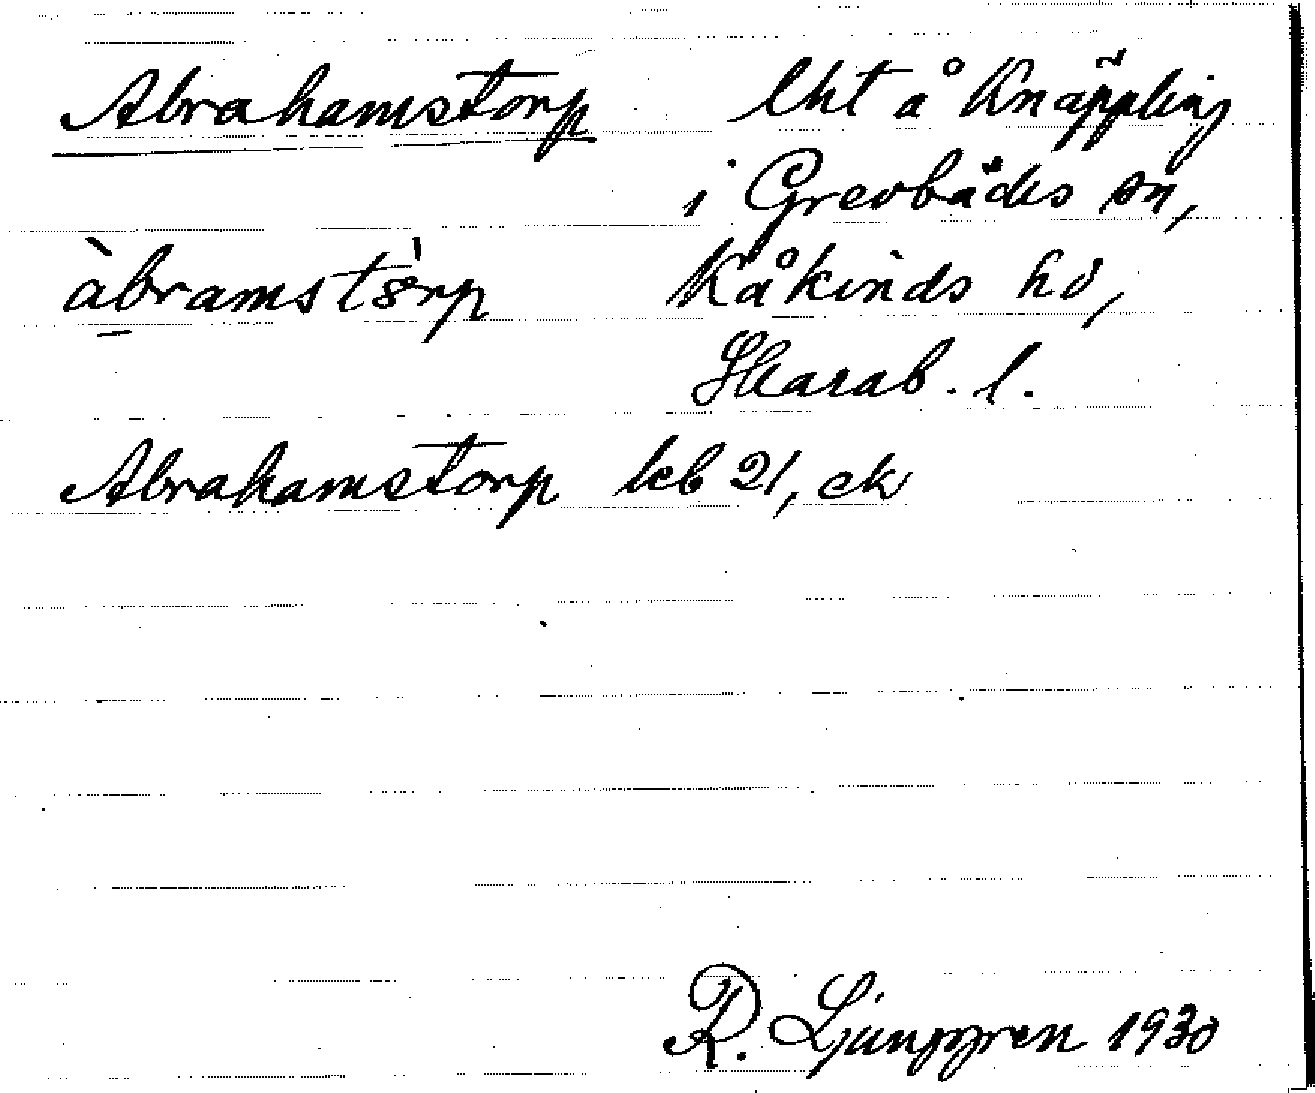 Abrahamstorp lht å Knäppling
i Grevbäcks sn,
àbramstòrp Kåkinds hd,
Skarab. l.
Abrahamstorp kb 21, ek
R. Ljunggren 1930